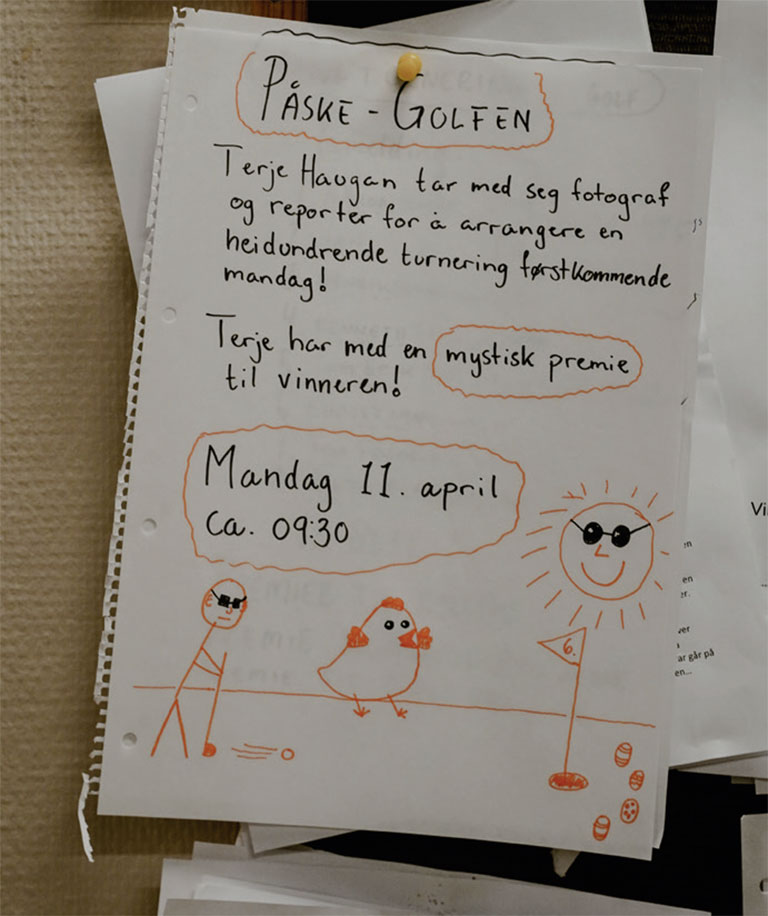 PÅSKE - GOLFEN
Terje Haugan tar med seg fotograf
og reporter for å arrangere en
heidundrende turnering førstkommende
mandag!
Terje har med en mystisk premie
til vinneren!
Mandag 11. april
ca. 09:30
6.
Vi
en
er.
ver
ar går på
en...